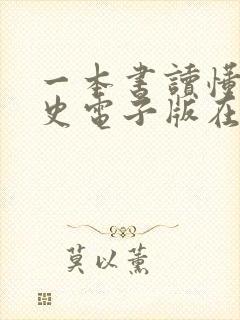 一本書讀懂
史電子版在
莫以薰